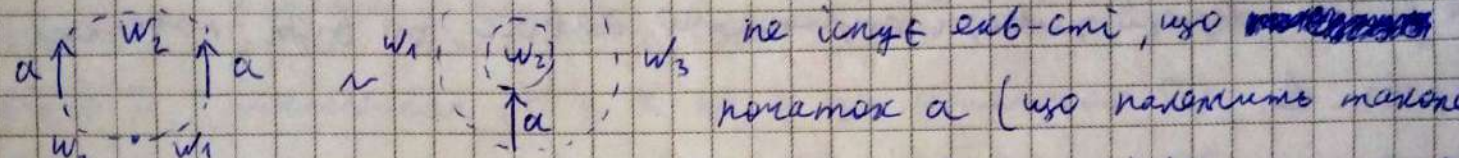 w₂ w₁ (w₂) w₃ не існує екв-сті, що
a a ~ a початок a (що належить також
w₁